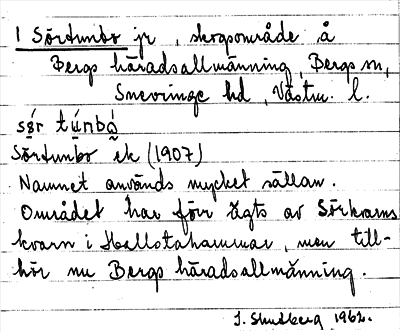 1 Sörtunbo jr, skogsområde å
Bergs häradsallmänning, Bergs sn,
Snevringe hd, Västm. l.
sǿr túnbó
Sörtunbo ek (1907)
Namnet används mycket sällan.
Området har förr ägts av Sörkvarns
kvarn i Hallstahammar, men till-
hör nu Bergs häradsallmänning.
1962.